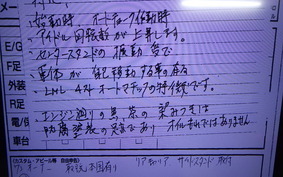 メー
始動時、オートチョーク作動時
アイドル回転数が上昇します。
センタースタンドの振動等で
車体が自己移動する事の有る
LML 4スト オートマチックの特徴です。
エンジン廻りの黒、茶の染みつきは
防腐塗装の足であり オイルもれではありません
E/G
F足
外装
R足
電/保
車台
(カスタム・アピール等 自由申告)
ワンオーナー 取説、本国有り リアキャリア サイドスタンド 取付